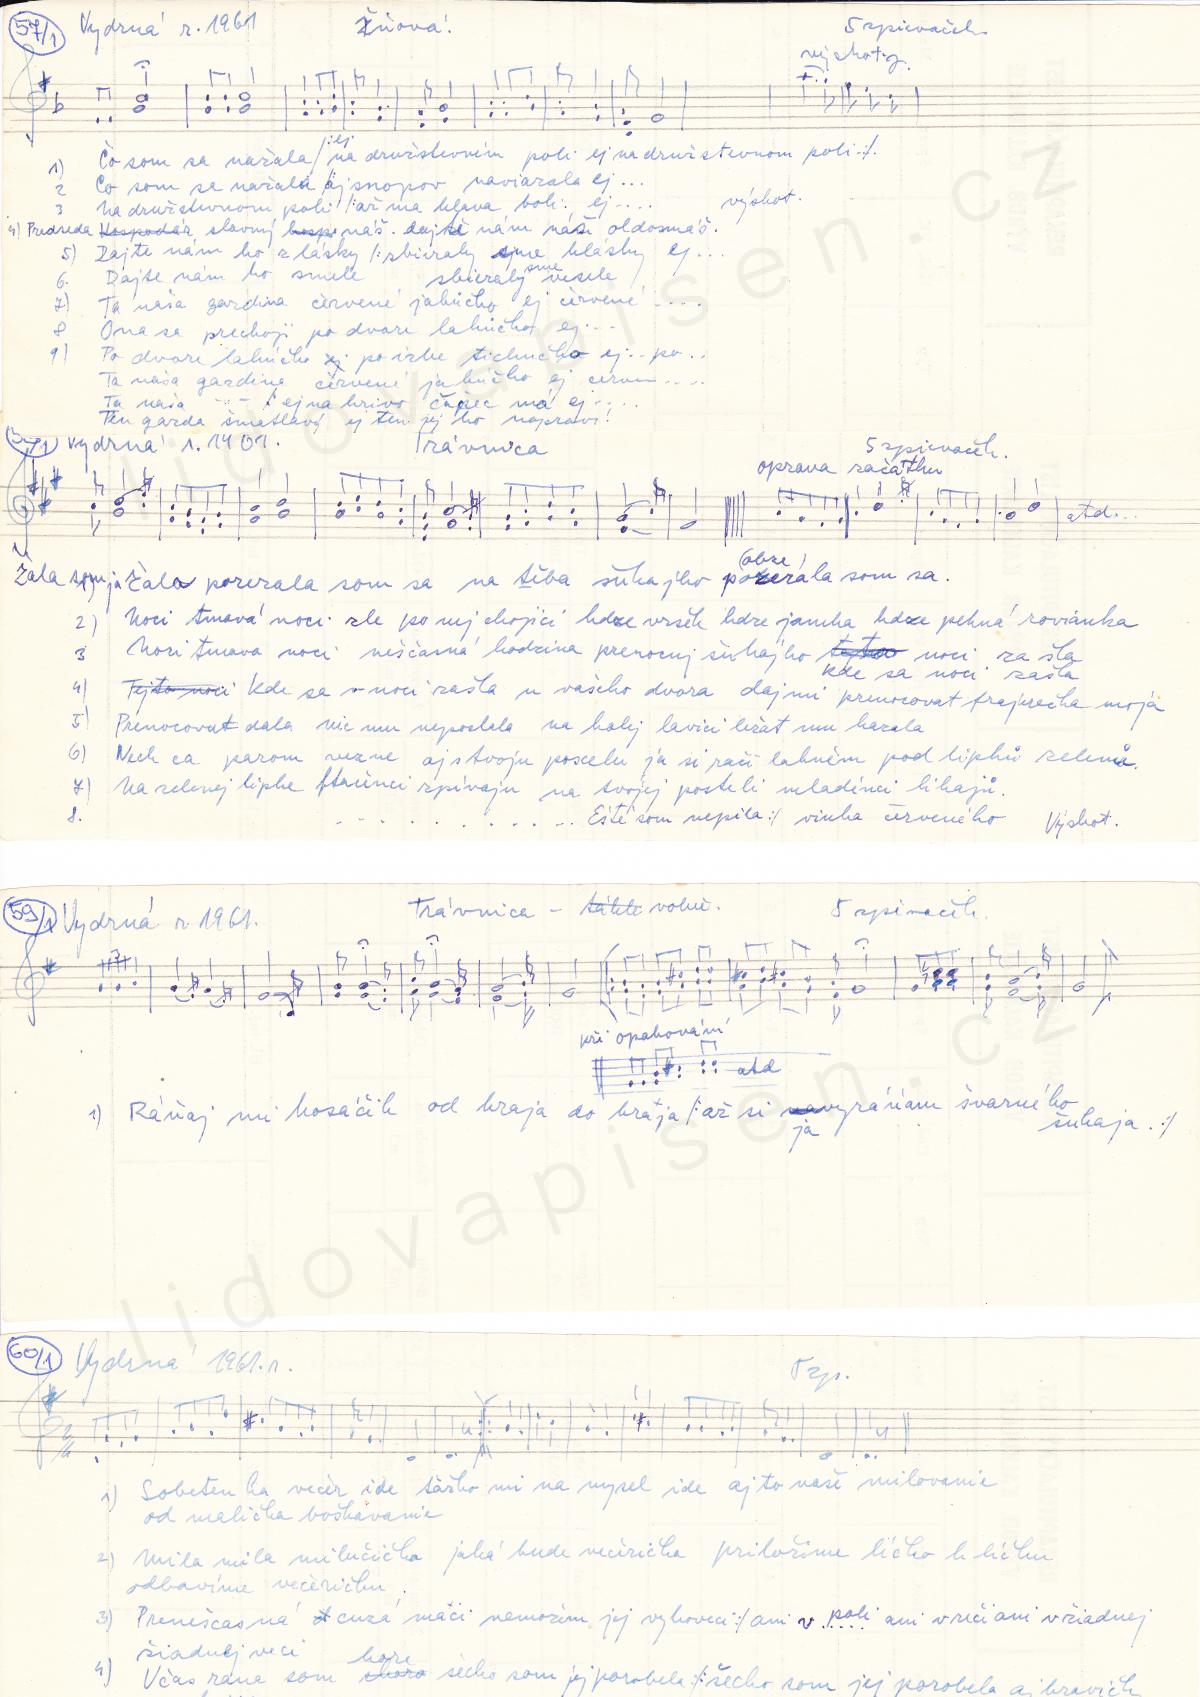 57/1 Vydrná r. 1961 Žňová. 5 zpievaček
výskot.
1) Čo som sa nažala /: ej na družstevném poli ej na družstevnom poli :/.
2 Čo som sa nažala aj snopov naviazala ej ...
3 Na družstevnom poli /: až ma hlava bolí. ej.... výskot.
4) Predseda Hospodár slavný náš. dajte nám náš oldomáš.
5) Dajte nám ho z lásky /: sbieraly sme klásky ej ...
6. Dajte nám ho smele sbieraly sme vesele
7) Ta naša gazdina červené jabúčko ej červené ....
8 Ona sa prechoji po dvore lahúčko ej ...
9) Po dvore lahúčko ej po izbe tichúčko ej .. po ..
Ta naša gazdina červené jabúčko ej červen ....
Ta naša --- ej na krivo čapec má ej ....
Ten gazda šmatlavý ej ten jej ho napraví!
Vydrná r. 1961. Trávnica 5 zpievaček.
oprava začátku
atd...
obze!
Žala som ja žala pozerala som sa na těba šuhajko pozerala som sa.
2) Noci tmavá noci zle po nej chojici kdze vršek kdze jamka kdze pekná roviánka
3 Noci tmava noci neščasná hodzina prenocuj šuhajko noci zašla
kde sa noci zašla
4) Tejto noci Kde sa noci zašla u vašeho dvora daj mi prenocovat frajerečka moja
5) Prenocovat dala nic mu neposlala na holej lavici ležat mu kazala
6) Nech ca parom vezne aj stvoju poscelu ja si rači lahnem pod lipků zelenů.
7) Na zelenej lipke ftačinci zpívaju na tvojej posteli mladénci líhajů.
8. - - - - - - - - - - Ešte som nepila :/ vinka červeného Výskot.
59/1 Vydrná r. 1961. Trávnica – táhle volně. 5 zpivaček.
při opakování
atd
1) Ráňaj mi kosáčik od kraja do kraja /: až si vyráňam švarného
ja šuhaja. :/
60/1 Vydrná 1961. r. 5 zp.
1) Sobotenka večer ide tážko mi na mysel ide aj to naše milovanie
od malička boškávanie
2) Mila mila milučička jaká bude večerička priložíme líčko k líčku
odbavíme večeričku.
3) Prenešcasná cuzá máci nemožem jej vyhoveci :/ ani v poli ani v reči ani v žiadnej
žiadnej veci
hore
4) Včas rana som skoro šecko som jej porobela :/: šecko som jej porobela aj kravičk
lidovapisen.cz
lidovapisen.cz